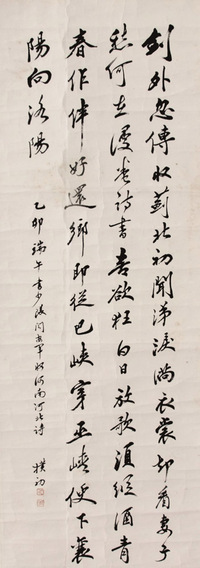 剑外忽传收蓟北初闻涕泪满衣裳却看妻子
愁何在漫卷诗书喜欲狂白日放歌须纵酒青
春作伴好还乡即从巴峡穿巫峡便下襄
阳向洛阳
乙卯端午书少陵闻官军收河南河北诗
朴初